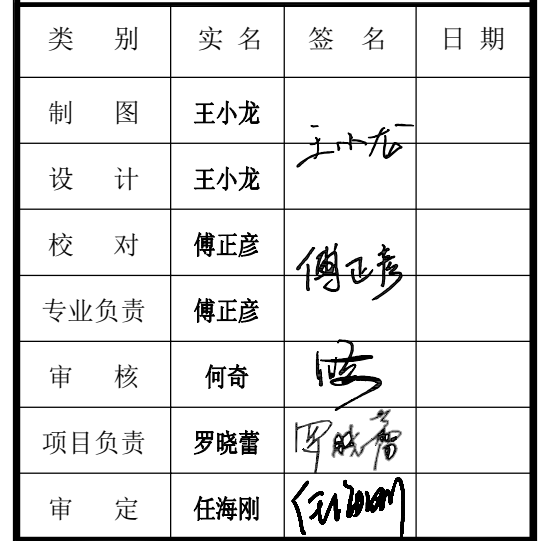 类 别 实 名 签 名 日 期
制 图 王小龙
王小龙
设 计 王小龙
校 对 傅正彦
傅正彦
专业负责 傅正彦
审 核 何奇 何奇
项目负责 罗晓蕾 罗晓蕾
审 定 任海刚 任海刚